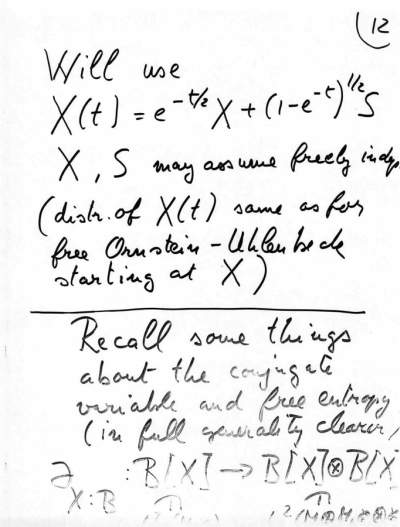 12
Will use
X(t) = e^{-t/2} X + (1-e^{-t})^{1/2} S
X, S may assume freely indp.
(distr. of X(t) same as for
free Ornstein-Uhlenbeck
starting at X)
Recall some things
about the conjugate
variable and free entropy
(in full generality clearer,
∂_{X:B} : B[X] → B[X]⊗B[X